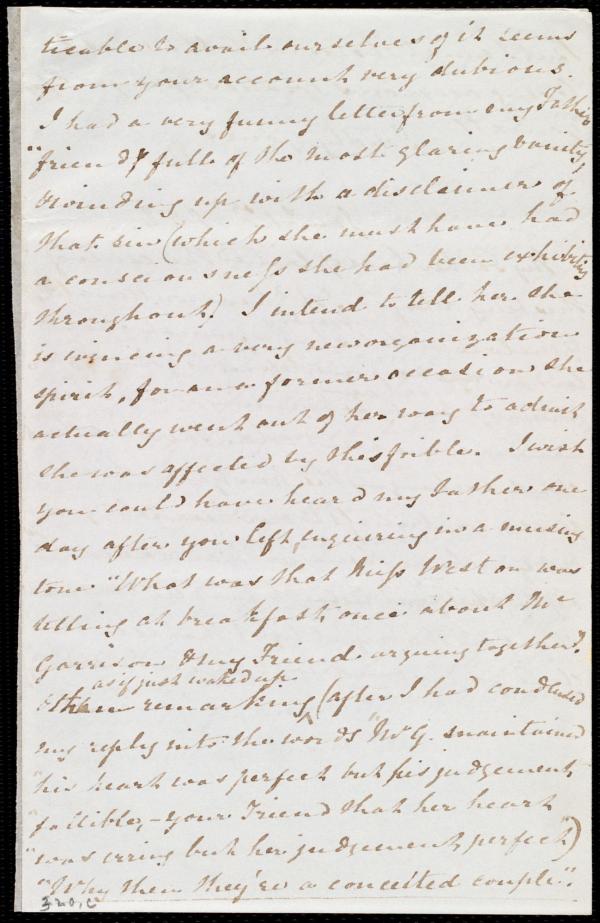 ticable to avail ourselves of it seems
from your account very dubious.
I had a very funny letter from my Father's
"friend" full of the most glaring vanity,
& winding up with a disclaimer of
that sin (which she must have had
a consciousness she had been exhibiting
throughout). I intend to tell her she
is evincing a very new organization
spirit, for on a former occasion she
actually went out of her way to admit
she was affected by this foible. I wish
you could have heard my Father one
day after you left, enquiring in a musing
tone "What was that Miss Weston was
telling at breakfast once about Mr
Garrison & my Friend arguing together"?
as if just waked up
& then remarking (after I had condensed
my reply into the words "Mr G. maintained
"his heart was perfect but his judgement
"fallible, – your Friend that her heart
"was erring but her judgement perfect")
"Why then they're a conceited couple".
320, C